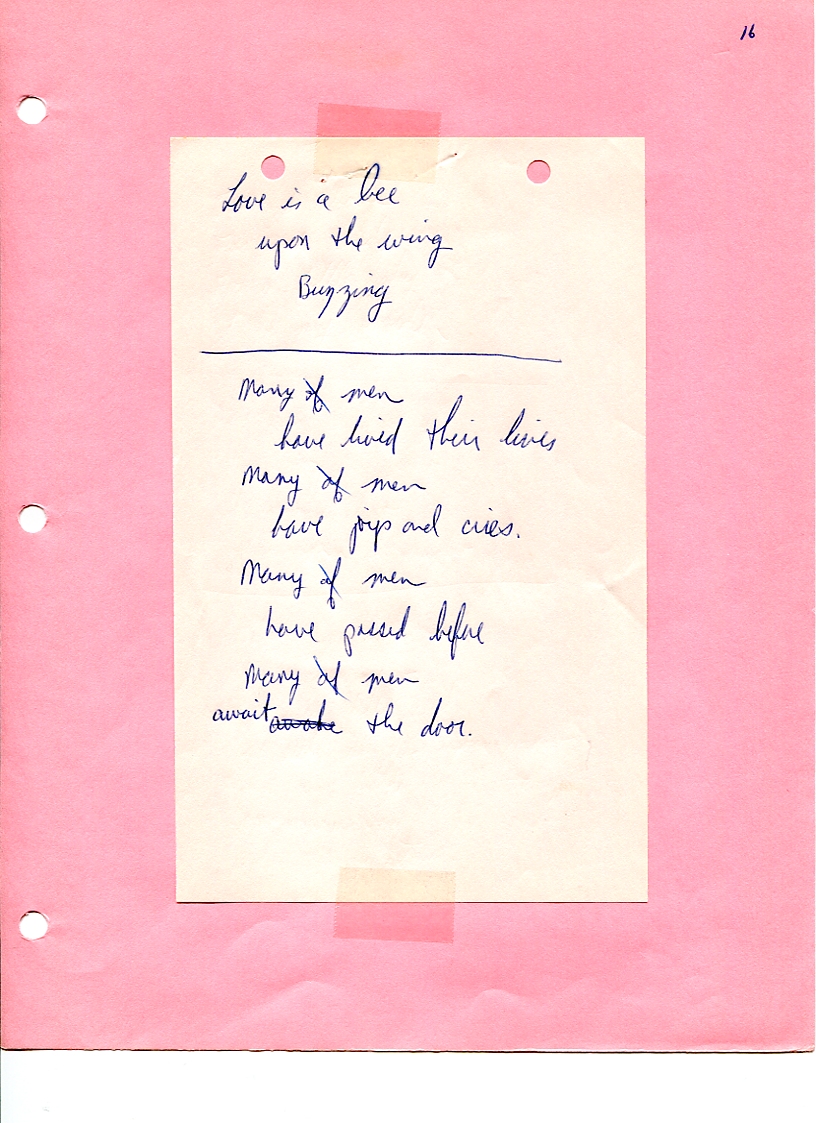 16
Love is a bee
upon the wing
Buzzing
Many of men
have lived their lives
Many of men
have joys and cries.
Many of men
have passed before
Many of men
await awake the door.